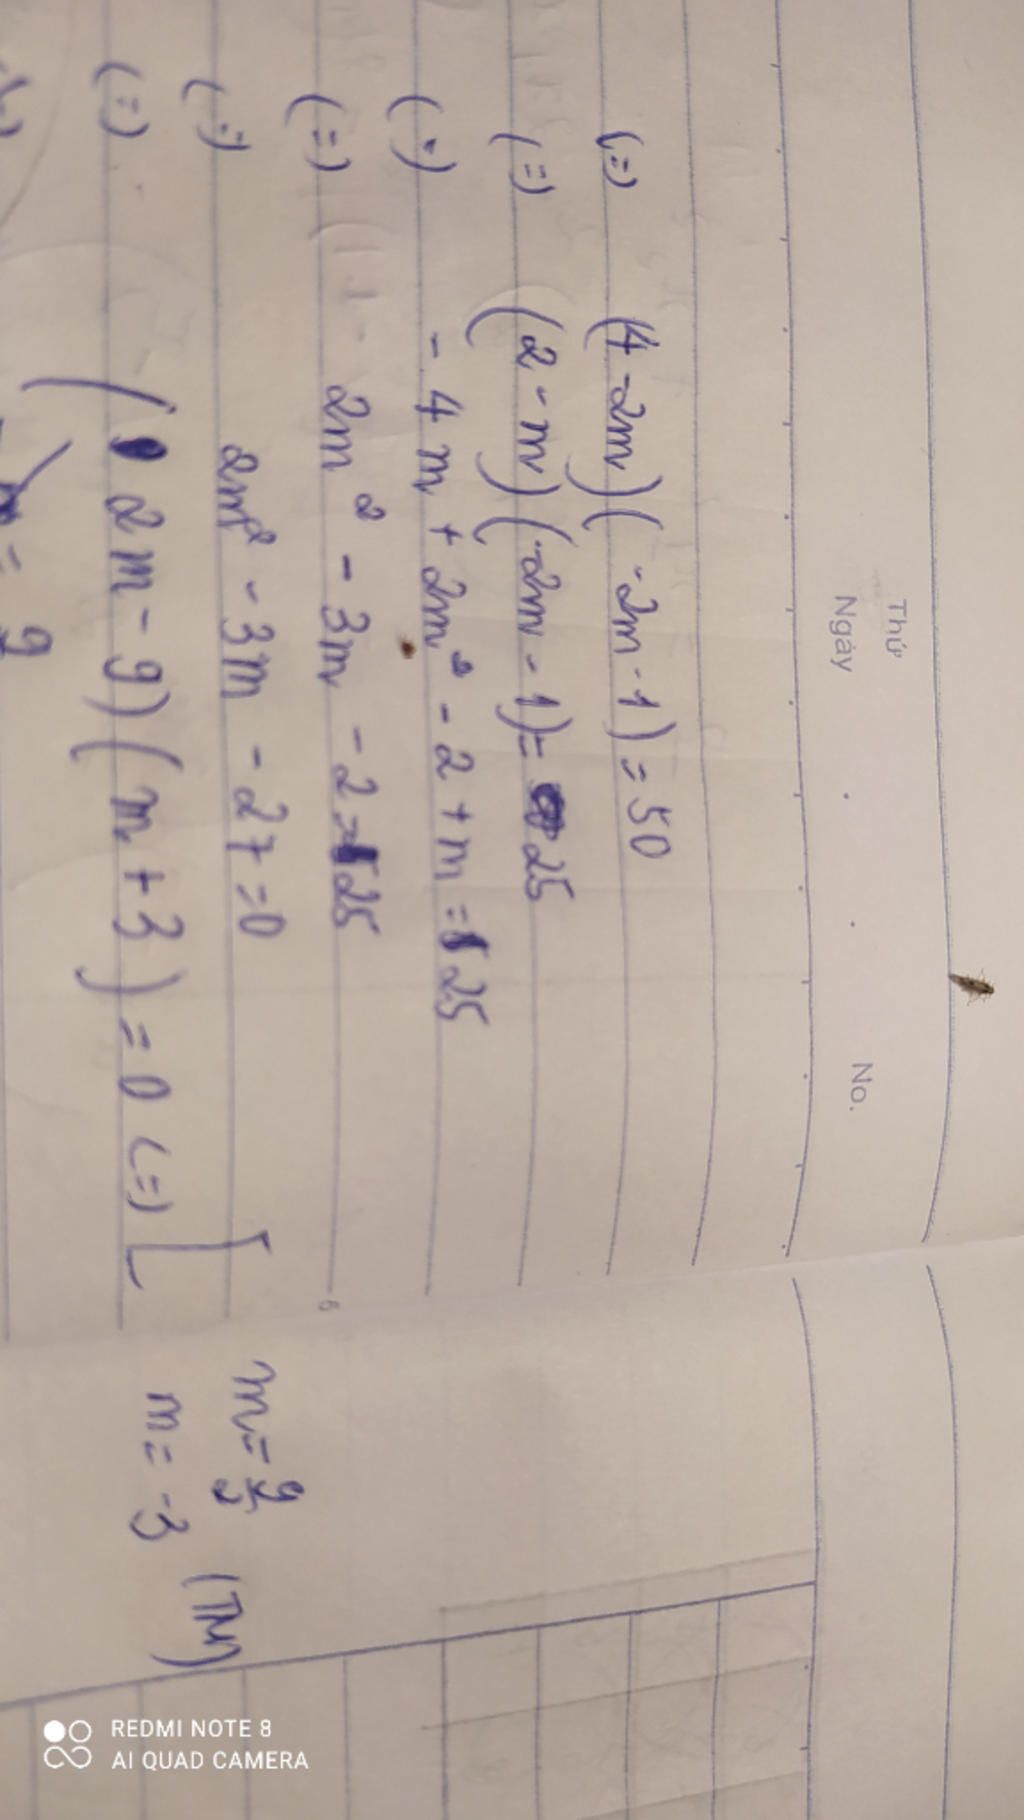 Thứ
Ngày . . No.
(=) (4-2m)(-2m-1)=50
(=) (2-m)(-2m-1)=25
(=) -4m+2m²-2+m=25
(=) 2m²-3m-2=25
(=) 2m²-3m-27=0
(=) (2m-9)(m+3)=0 (=) [ m=9/2
m=-3 (TM)
m = 9
REDMI NOTE 8
AI QUAD CAMERA